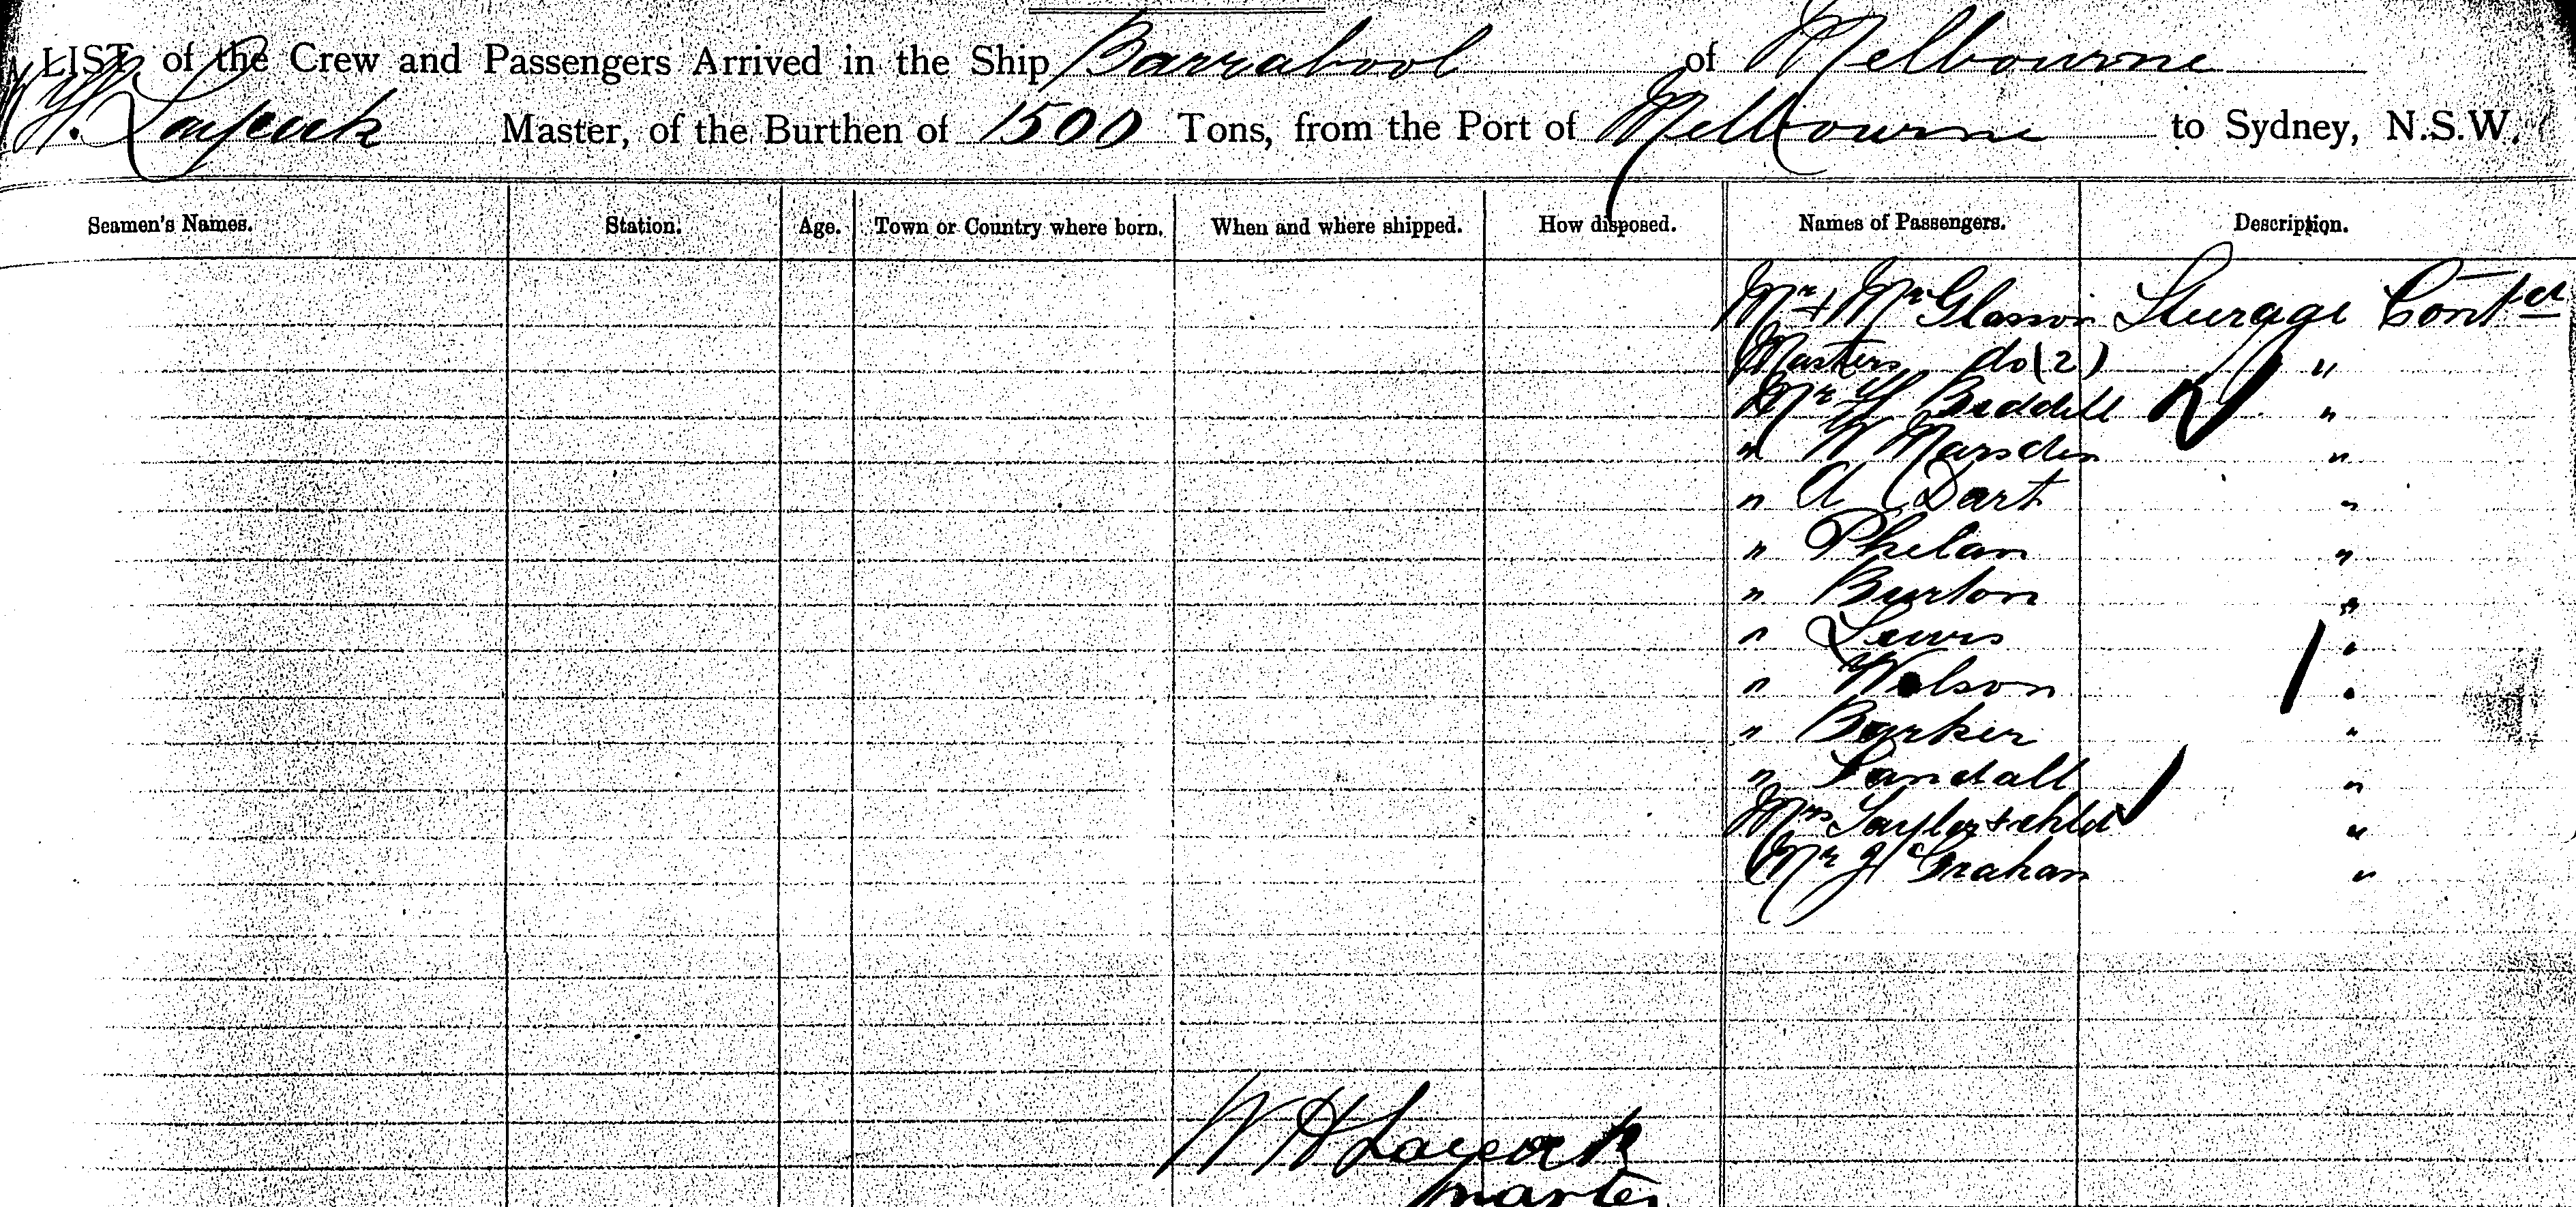 LIST of the Crew and Passengers Arrived in the Ship Barrabool of Melbourne
W. H. Laycock Master, of the Burthen of 1500 Tons, from the Port of Melbourne to Sydney, N.S.W.
Seamen's Names. Station. Age. Town or Country where born. When and where shipped. How disposed. Names of Passengers. Description.
Mr + Mrs Glasson Steerage Contd
Masters do (2) "
Mr H Biddell "
" W Marsden "
" A Dart "
" Phelan "
" Burton "
" Lewis "
" Wilson "
" Barker "
" Randall "
Mrs Taylor + child "
Mr J Graham "
W H Laycock
Master